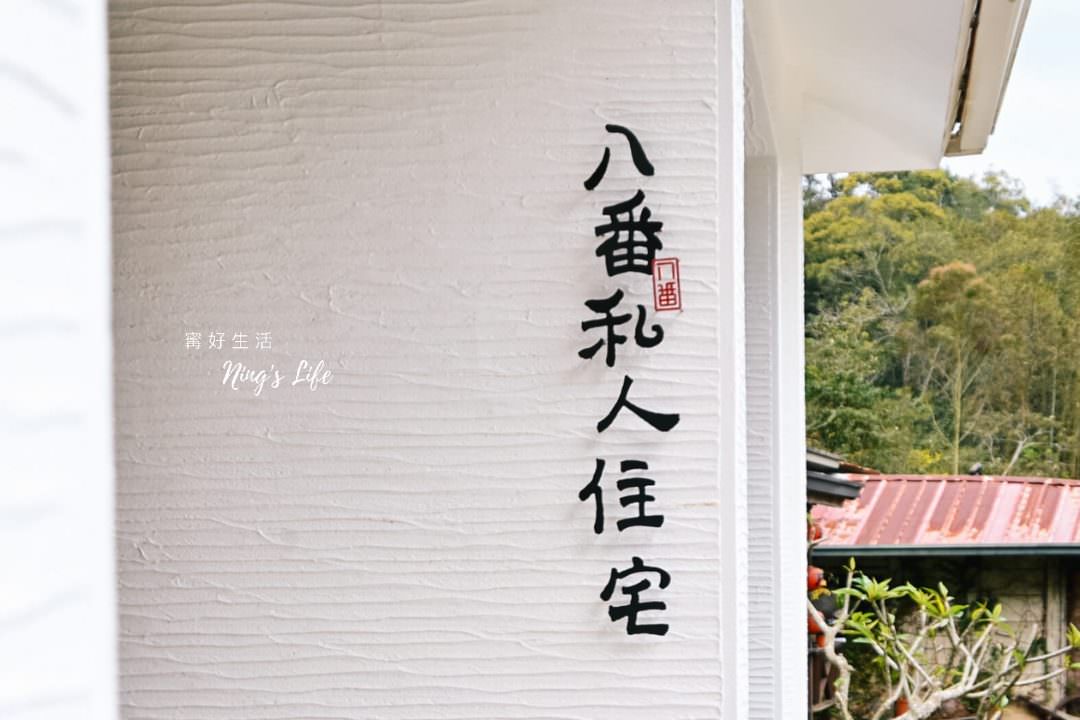 八番私人住宅
八番
寗好生活
Ning's Life